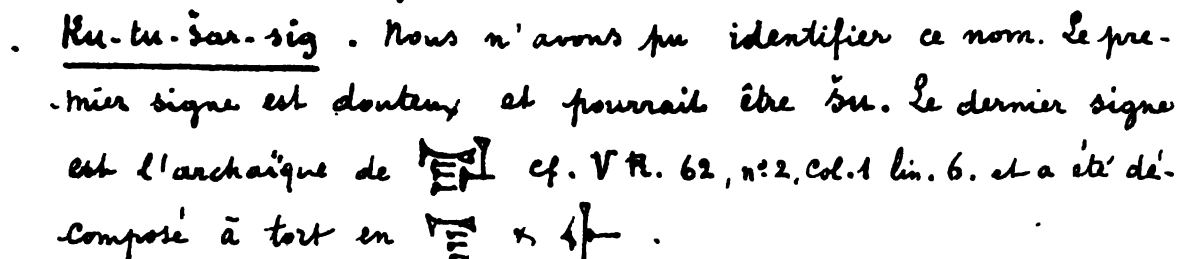 . Ku-tu-šar-sig. Nous n'avons pu identifier ce nom. Le pre-
-mier signe est douteux et pourrait être šu. Le dernier signe
est l'archaïque de cf. V R. 62, n° 2, Col. 1 lin. 6. et a été dé-
-composé à tort en .